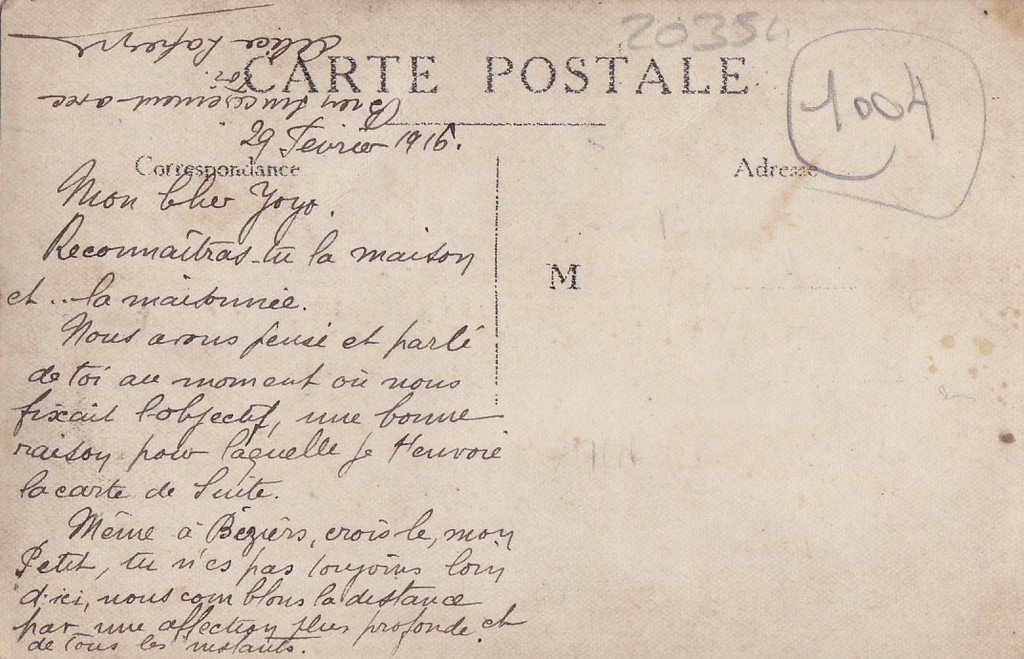 20354
1004
CARTE POSTALE
29 Février 1916.
Correspondance
Adresse
M
Mon Cher Yoyo.
Reconnaîtras-tu la maison
et... la maisonnée.
Nous avons pensé et parlé
de toi au moment où nous
fixait l'objectif, une bonne
raison pour laquelle je t'envoie
la carte de suite.
Même à Béziers, crois le, mon
Petit, tu n'es pas toujours loin
d'ici, nous comblons la distance
par une affection plus profonde et
de tous les instants.
Bien sincèrement avec
toi.
Alice